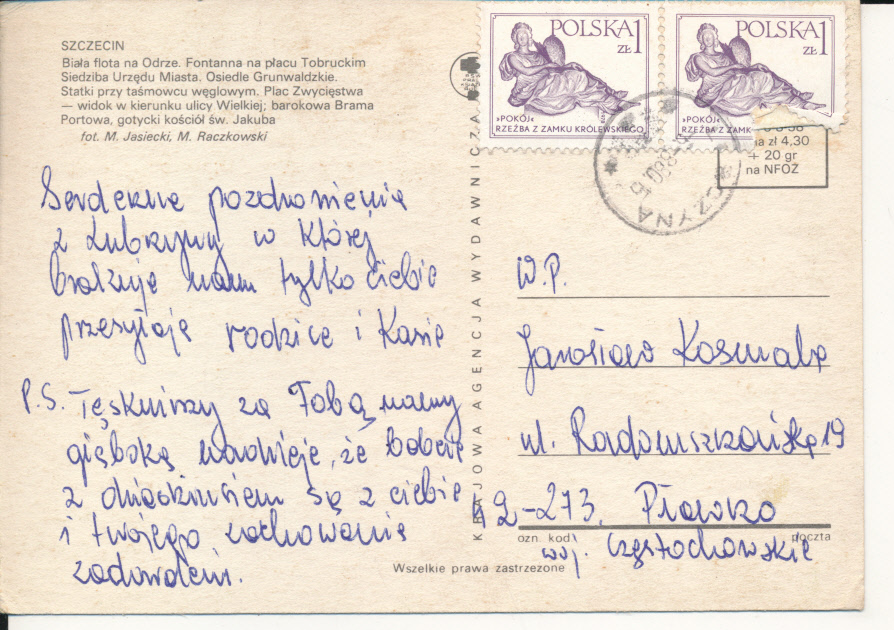 SZCZECIN
Biała flota na Odrze. Fontanna na placu Tobruckim
Siedziba Urzędu Miasta. Osiedle Grunwaldzkie.
Statki przy taśmowcu węglowym. Plac Zwycięstwa
— widok w kierunku ulicy Wielkiej; barokowa Brama
Portowa, gotycki kościół św. Jakuba
fot. M. Jasiecki, M. Raczkowski
Serdeczne pozdrowienia
z Lubczyny w której
brakuje nam tylko ciebie
przesyłają rodzice i Kasia
P.S. Tęsknimy za Tobą mamy
głęboką nadzieję, że babcia
z dziadkiem są z ciebie
i twojego zachowania
zadowoleni.
KRAJOWA AGENCJA WYDAWNICZA
POLSKA 1
ZŁ
»POKÓJ«
RZEŹBA Z ZAMKU KRÓLEWSKIEGO
POLSKA 1
ZŁ
»POKÓJ«
RZEŹBA Z ZAMK
CZYNA
zł 4,30
+ 20 gr
na NFOZ
W.P.
Jarosław Kosmala
ul. Radomszkońska 19
42-273. Pławno
ozn. kod. poczta
woj. Częstochowskie
Wszelkie prawa zastrzeżone